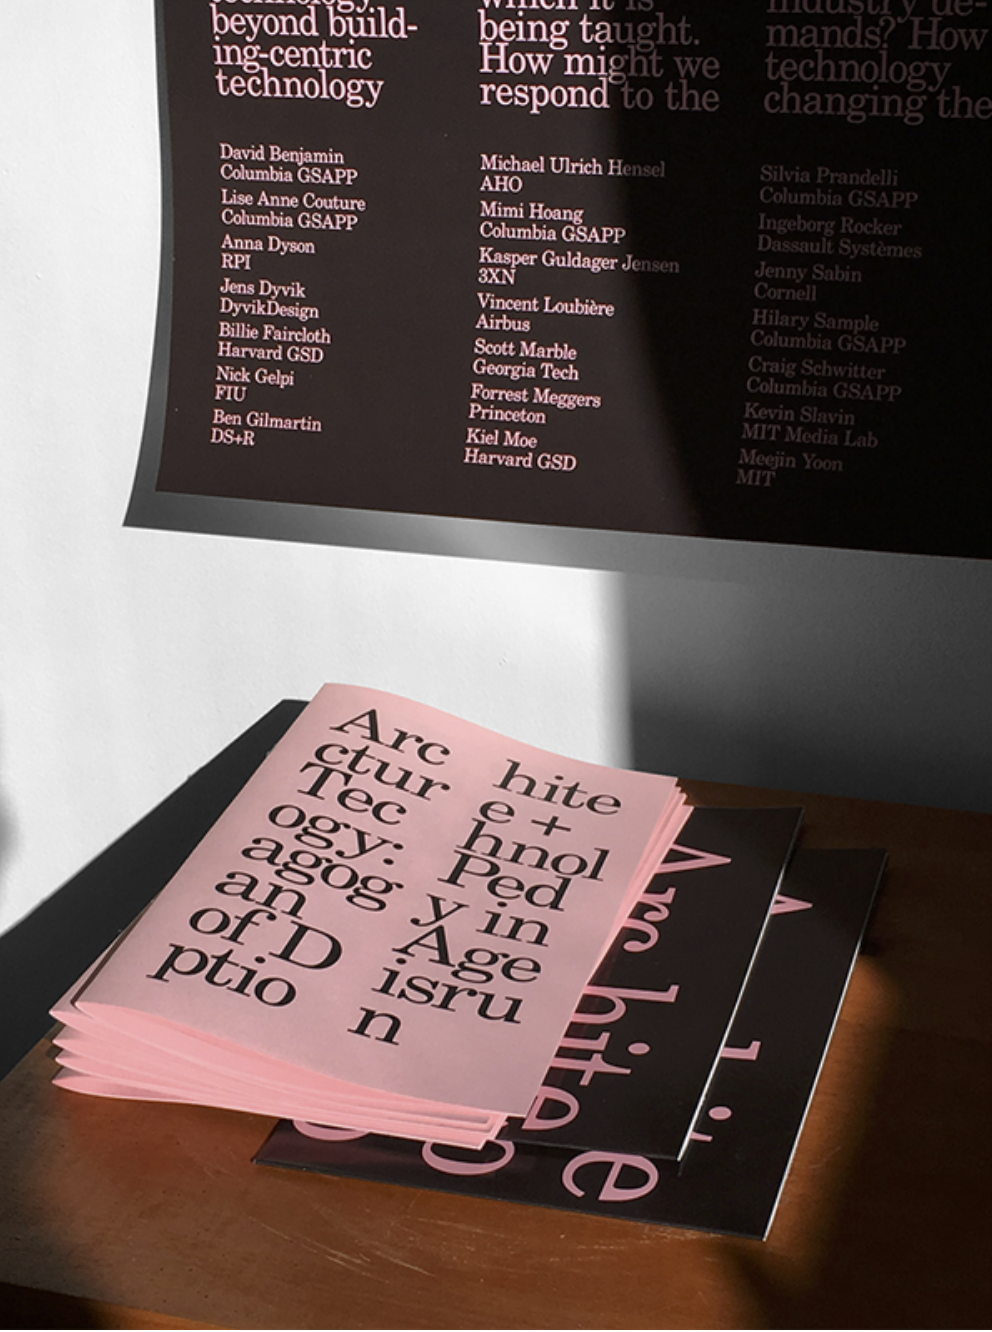 technology
beyond build-
ing-centric
technology
David Benjamin
Columbia GSAPP
Lise Anne Couture
Columbia GSAPP
Anna Dyson
RPI
Jens Dyvik
DyvikDesign
Billie Faircloth
Harvard GSD
Nick Gelpi
FIU
Ben Gilmartin
DS+R
which it is
being taught.
How might we
respond to the
Michael Ulrich Hensel
AHO
Mimi Hoang
Columbia GSAPP
Kasper Guldager Jensen
3XN
Vincent Loubière
Airbus
Scott Marble
Georgia Tech
Forrest Meggers
Princeton
Kiel Moe
Harvard GSD
industry de-
mands? How
technology
changing the
Silvia Prandelli
Columbia GSAPP
Ingeborg Rocker
Dassault Systèmes
Jenny Sabin
Cornell
Hilary Sample
Columbia GSAPP
Craig Schwitter
Columbia GSAPP
Kevin Slavin
MIT Media Lab
Meejin Yoon
MIT
Arc hite
ctur e +
Tec hnol
ogy: Ped
agog y in
an Age
of D isru
ptio n
Arc hite